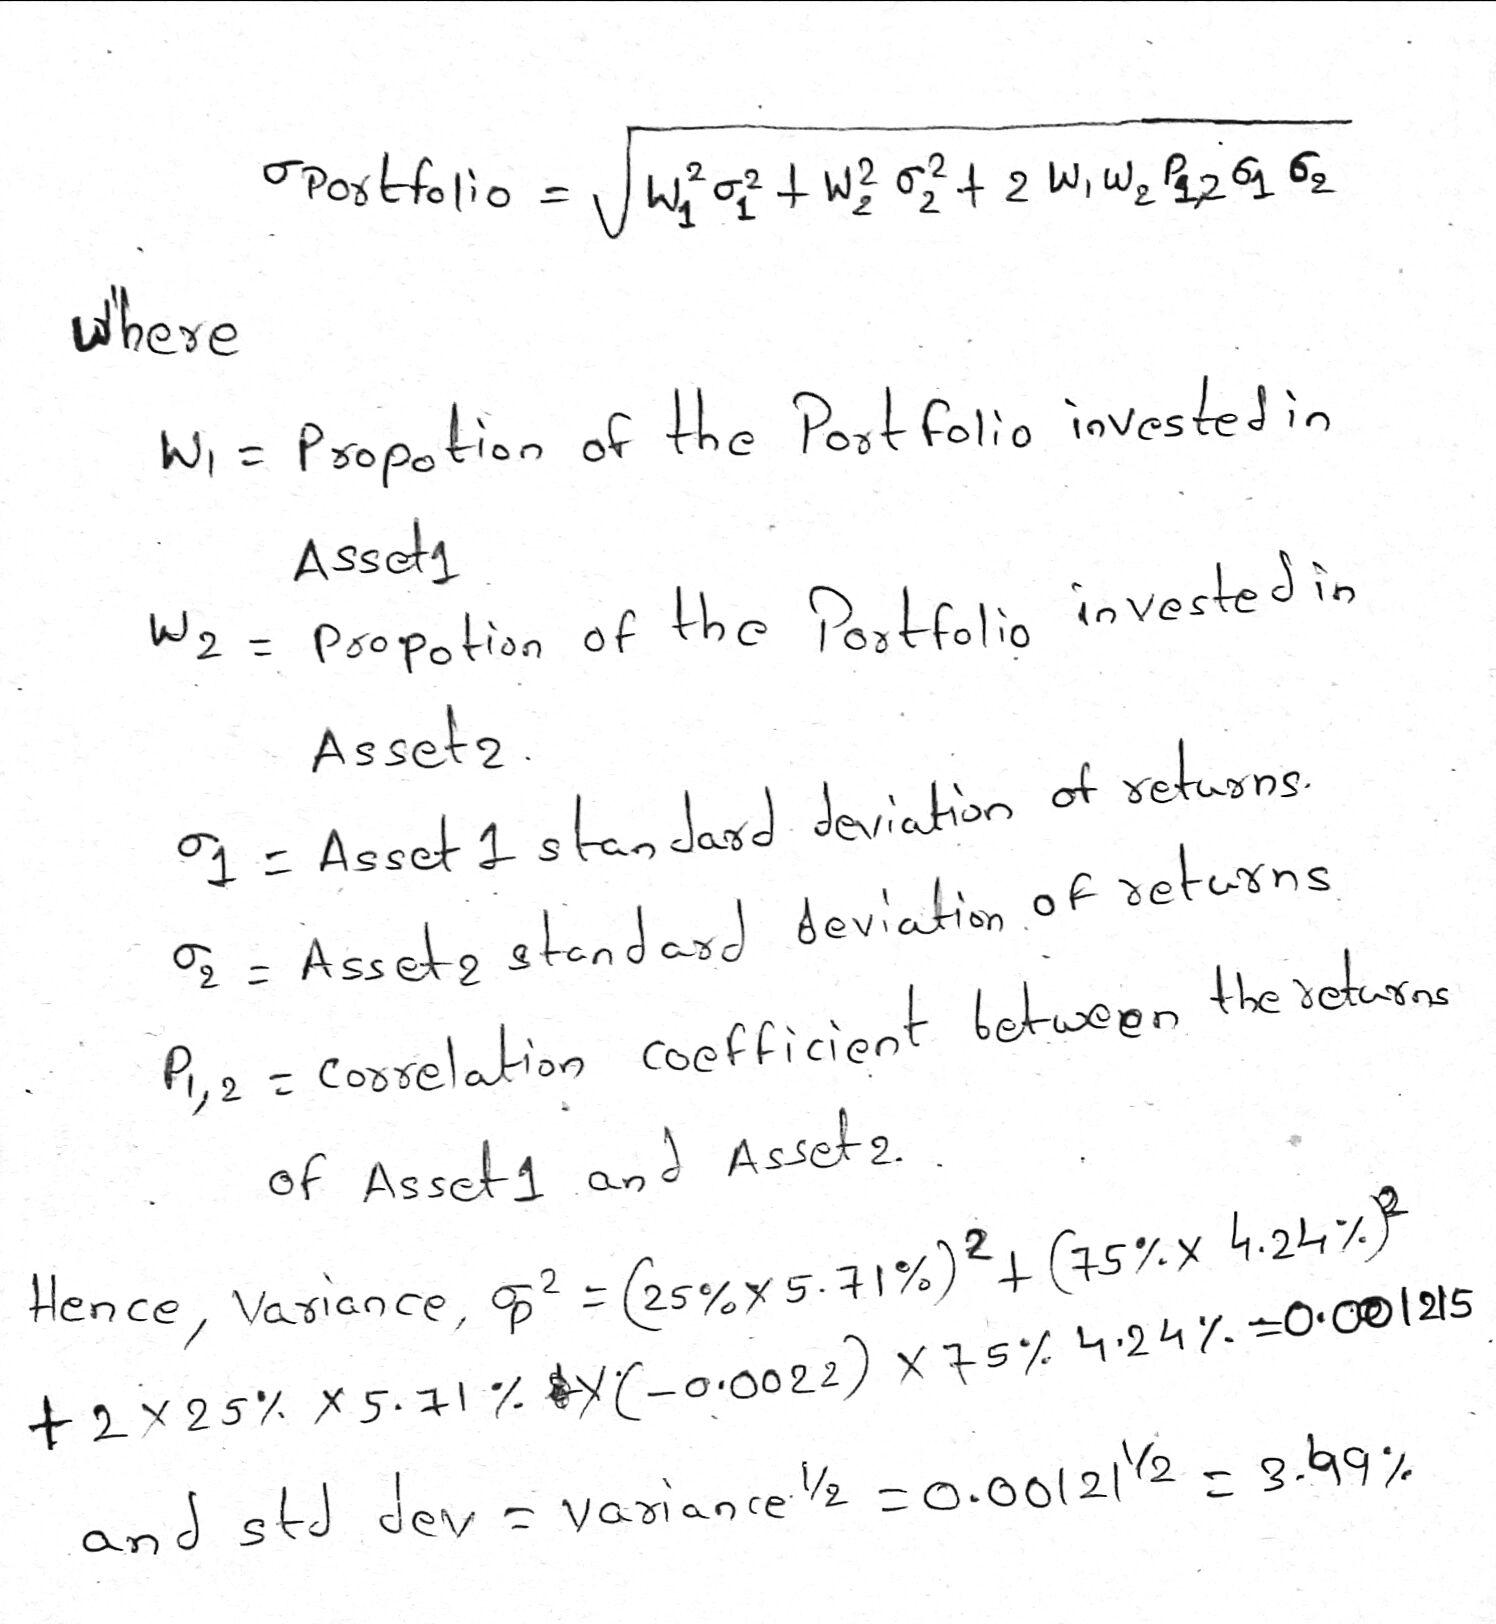 σPortfolio = √W₁²σ₁² + W₂²σ₂² + 2 W₁W₂ρ₁,₂σ₁σ₂
Where
W₁ = Propotion of the Portfolio invested in
Asset1
W₂ = Propotion of the Portfolio invested in
Asset2.
σ₁ = Asset 1 standard deviation of returns.
σ₂ = Asset2 standard deviation of returns
P₁,₂ = correlation coefficient between the returns
of Asset1 and Asset2.
Hence, Variance, σp² = (25% x 5.71%)² + (75% x 4.24%)²
+ 2 x 25% x 5.71% x (-0.0022) x 75% 4.24% = 0.001215
and std dev = variance^1/2 = 0.00121^1/2 = 3.49%